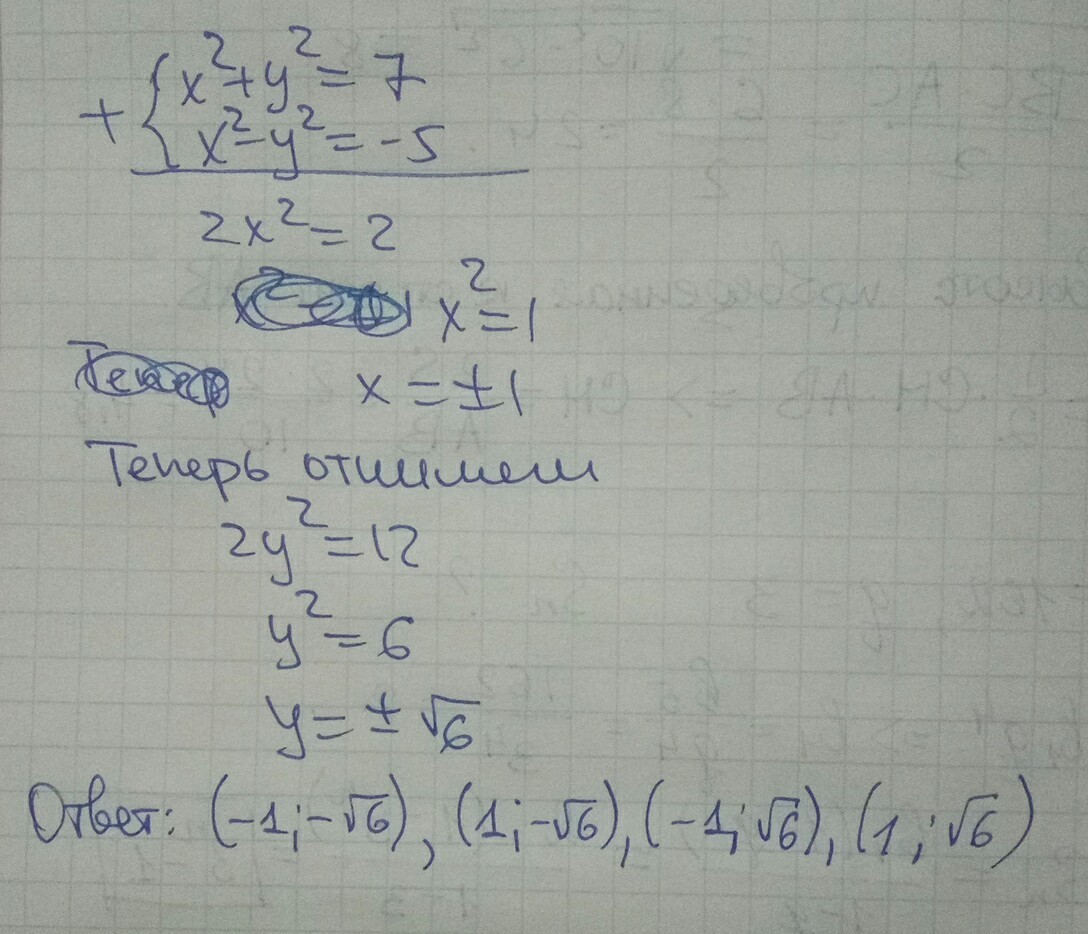 + { x² + y² = 7
x² - y² = -5
2x² = 2
x² = 1
x = ±1
Теперь отнимем
2y² = 12
y² = 6
y = ± √6
Ответ: (-1; -√6), (1; -√6), (-1; √6), (1; √6)